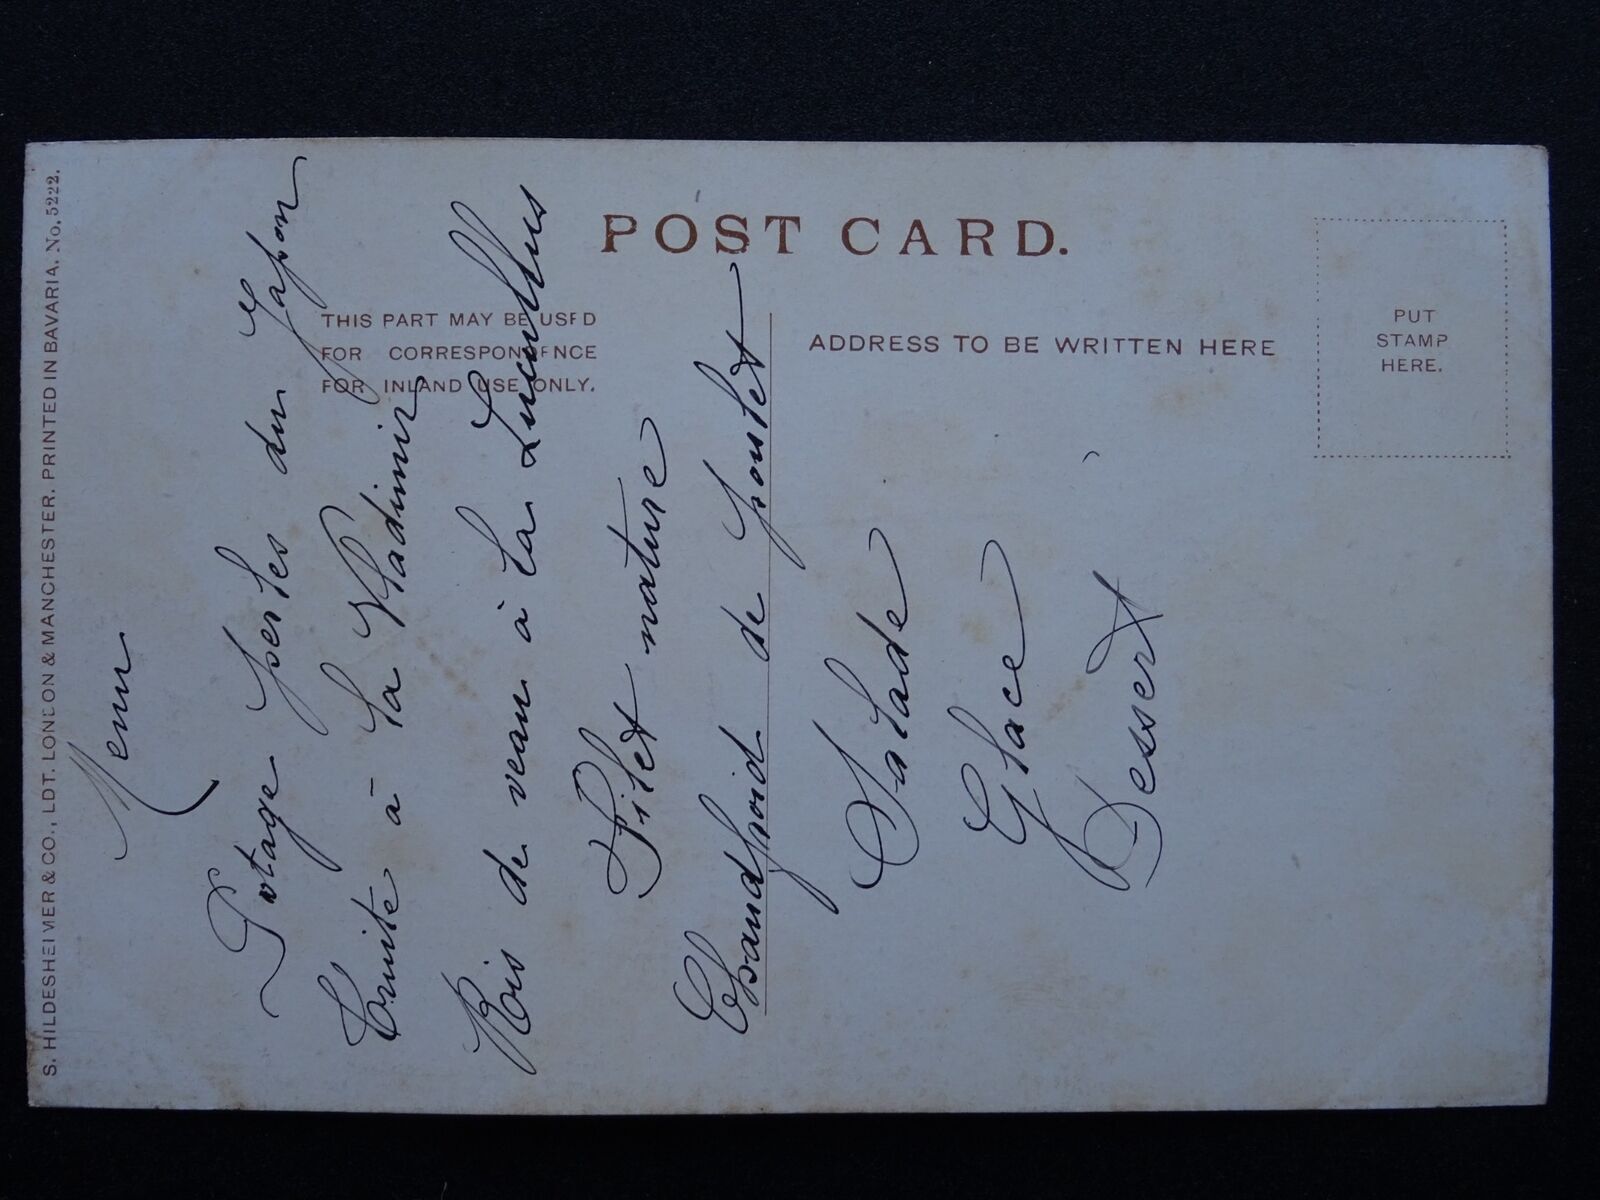 POST CARD.
THIS PART MAY BE USED
FOR CORRESPONDENCE
FOR INLAND USE ONLY.
ADDRESS TO BE WRITTEN HERE
PUT
STAMP
HERE.
S. HILDESHEIMER & CO., LDT. LONDON & MANCHESTER. PRINTED IN BAVARIA. No. 5222.
Menu
Potage perles du Japon
Truite à la Vladimir
Ris de veau à la Lucullus
Filet nature
Chaudfroid de poulet
Salade
Glace
Dessert